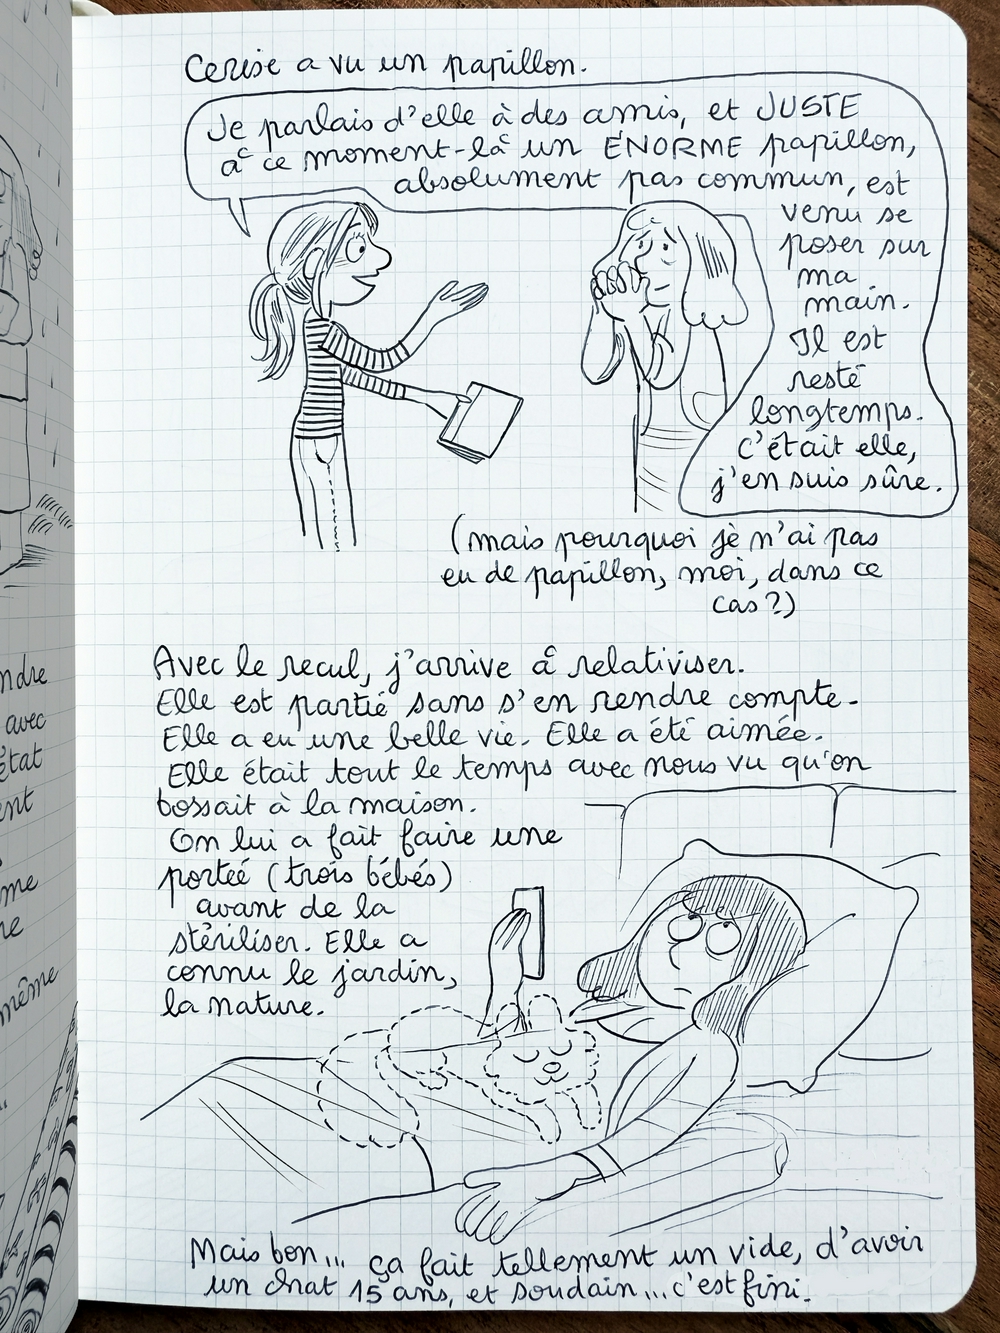 Cerise a vu un papillon.
Je parlais d'elle à des amis, et JUSTE
à ce moment-là un ÉNORME papillon,
absolument pas commun, est
venu se
poser sur
ma
main.
Il est
resté
longtemps.
C'était elle,
j'en suis sûre.
(mais pourquoi je n'ai pas
eu de papillon, moi, dans ce
cas ?)
Avec le recul, j'arrive à relativiser.
Elle est partie sans s'en rendre compte.
Elle a eu une belle vie. Elle a été aimée.
Elle était tout le temps avec nous vu qu'on
bossait à la maison.
On lui a fait faire une
portée (trois bébés)
avant de la
stériliser. Elle a
connu le jardin,
la nature.
Mais bon... ça fait tellement un vide, d'avoir
un chat 15 ans, et soudain... c'est fini.
ndre
avec
état
ent
me
ne
même